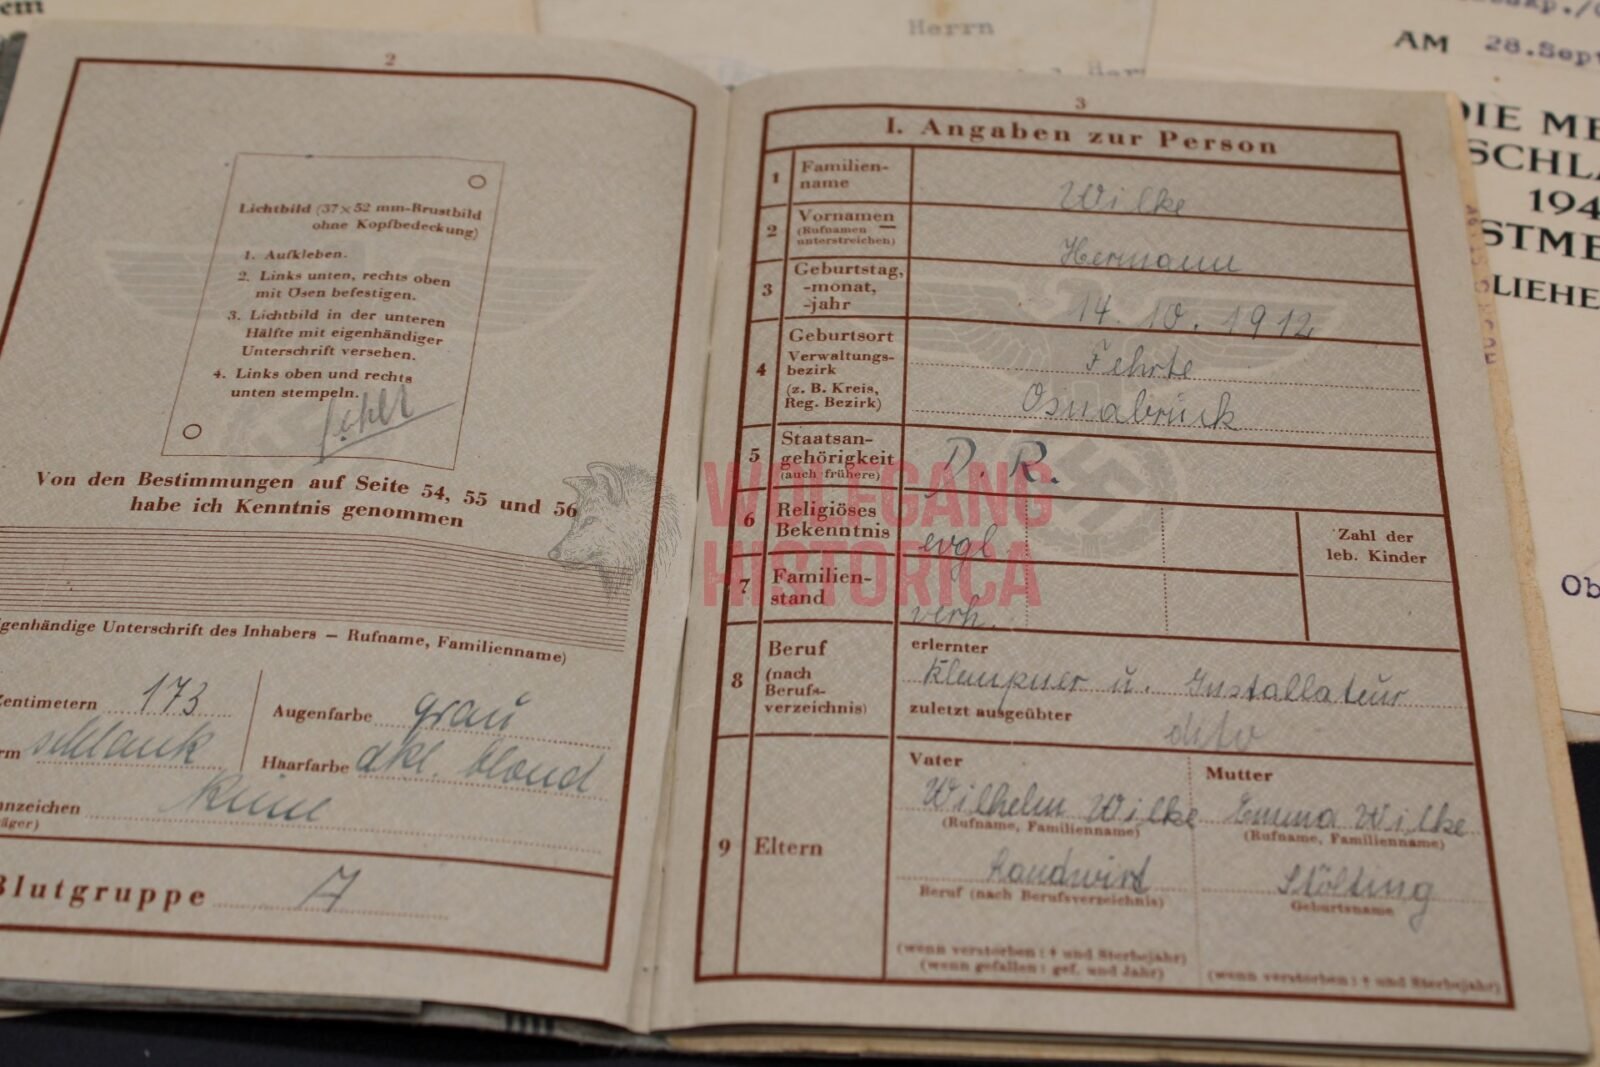 em
Herrn
AM 28.Sept
DIE ME
SCHLA
194
STME
LIEHE
Ob
2
Lichtbild (37×52 mm-Brustbild
ohne Kopfbedeckung)
1. Aufkleben.
2. Links unten, rechts oben
mit Ösen befestigen.
3. Lichtbild in der unteren
Hälfte mit eigenhändiger
Unterschrift versehen.
4. Links oben und rechts
unten stempeln.
fehlt
Von den Bestimmungen auf Seite 54, 55 und 56
habe ich Kenntnis genommen
genhändige Unterschrift des Inhabers — Rufname, Familienname)
Zentimetern 173
Augenfarbe grau
rm schlank
Haarfarbe dkl. blond
nnzeichen keine
äger)
Blutgruppe A
3
I. Angaben zur Person
1 Familien-
name
Wilke
2 Vornamen
(Rufnamen
unterstreichen)
Hermann
3 Geburtstag,
-monat,
-jahr
14. 10. 1912
4 Geburtsort
Verwaltungs-
bezirk
(z. B. Kreis,
Reg. Bezirk)
Fehrte
Osnabrück
5 Staatsan-
gehörigkeit
(auch frühere)
D. R.
6 Religiöses
Bekenntnis
evgl
Zahl der
leb. Kinder
7 Familien-
stand
verh.
8 Beruf
(nach
Berufs-
verzeichnis)
erlernter
Klempner u. Installateur
zuletzt ausgeübter
dito
9 Eltern
Vater
Wilhelm Wilke
(Rufname, Familienname)
Landwirt
Beruf (nach Berufsverzeichnis)
(wenn verstorben: † und Sterbejahr)
(wenn gefallen: gef. und Jahr)
Mutter
Emma Wilke
(Rufname, Familienname)
Stölting
Geburtsname
(wenn verstorben: † und Sterbejahr)
WOLFGANG
HISTORICA